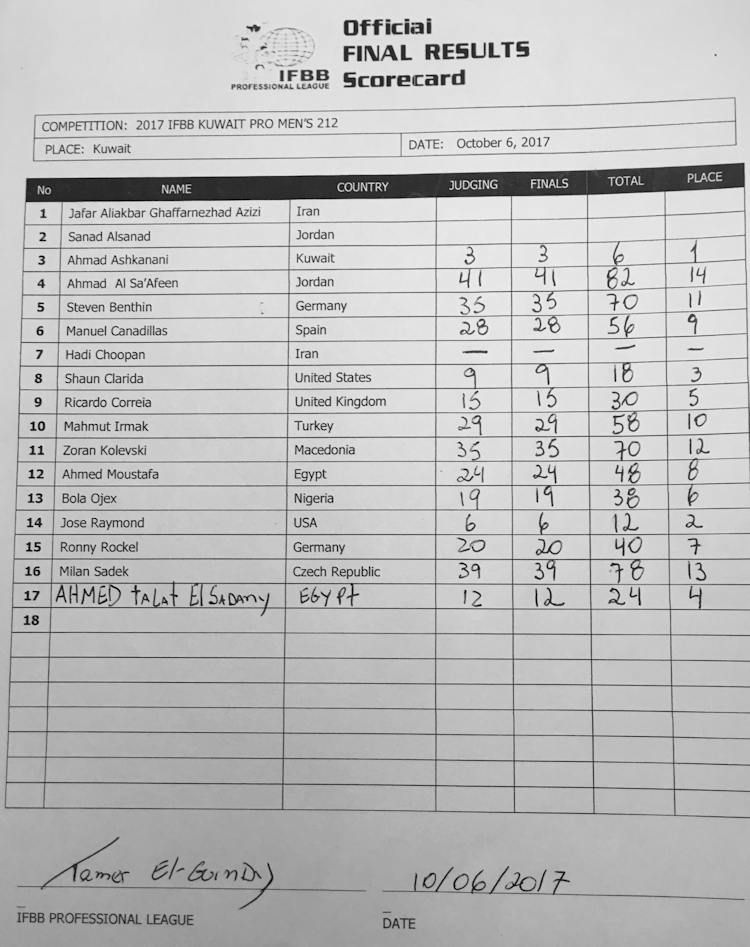 Official
FINAL RESULTS
IFBB Scorecard
PROFESSIONAL LEAGUE
COMPETITION: 2017 IFBB KUWAIT PRO MEN'S 212
PLACE: Kuwait DATE: October 6, 2017
No NAME COUNTRY JUDGING FINALS TOTAL PLACE
1 Jafar Aliakbar Ghaffarnezhad Azizi Iran
2 Sanad Alsanad Jordan
3 Ahmad Ashkanani Kuwait 3 3 6 1
4 Ahmad Al Sa'Afeen Jordan 41 41 82 14
5 Steven Benthin Germany 35 35 70 11
6 Manuel Canadillas Spain 28 28 56 9
7 Hadi Choopan Iran — — — —
8 Shaun Clarida United States 9 9 18 3
9 Ricardo Correia United Kingdom 15 15 30 5
10 Mahmut Irmak Turkey 29 29 58 10
11 Zoran Kolevski Macedonia 35 35 70 12
12 Ahmed Moustafa Egypt 24 24 48 8
13 Bola Ojex Nigeria 19 19 38 6
14 Jose Raymond USA 6 6 12 2
15 Ronny Rockel Germany 20 20 40 7
16 Milan Sadek Czech Republic 39 39 78 13
17 AHMED TALAT El SADANY EGYPT 12 12 24 4
18
Tamer El-Guindy 10/06/2017
IFBB PROFESSIONAL LEAGUE DATE